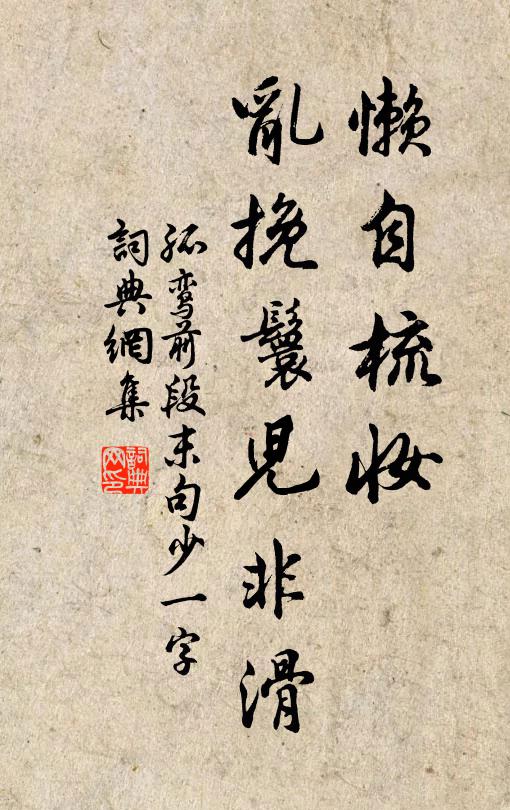 懒自梳妆
亂挽鬟兒非滑
孤鸾前段末句少一字
詞典網集
詞典网印